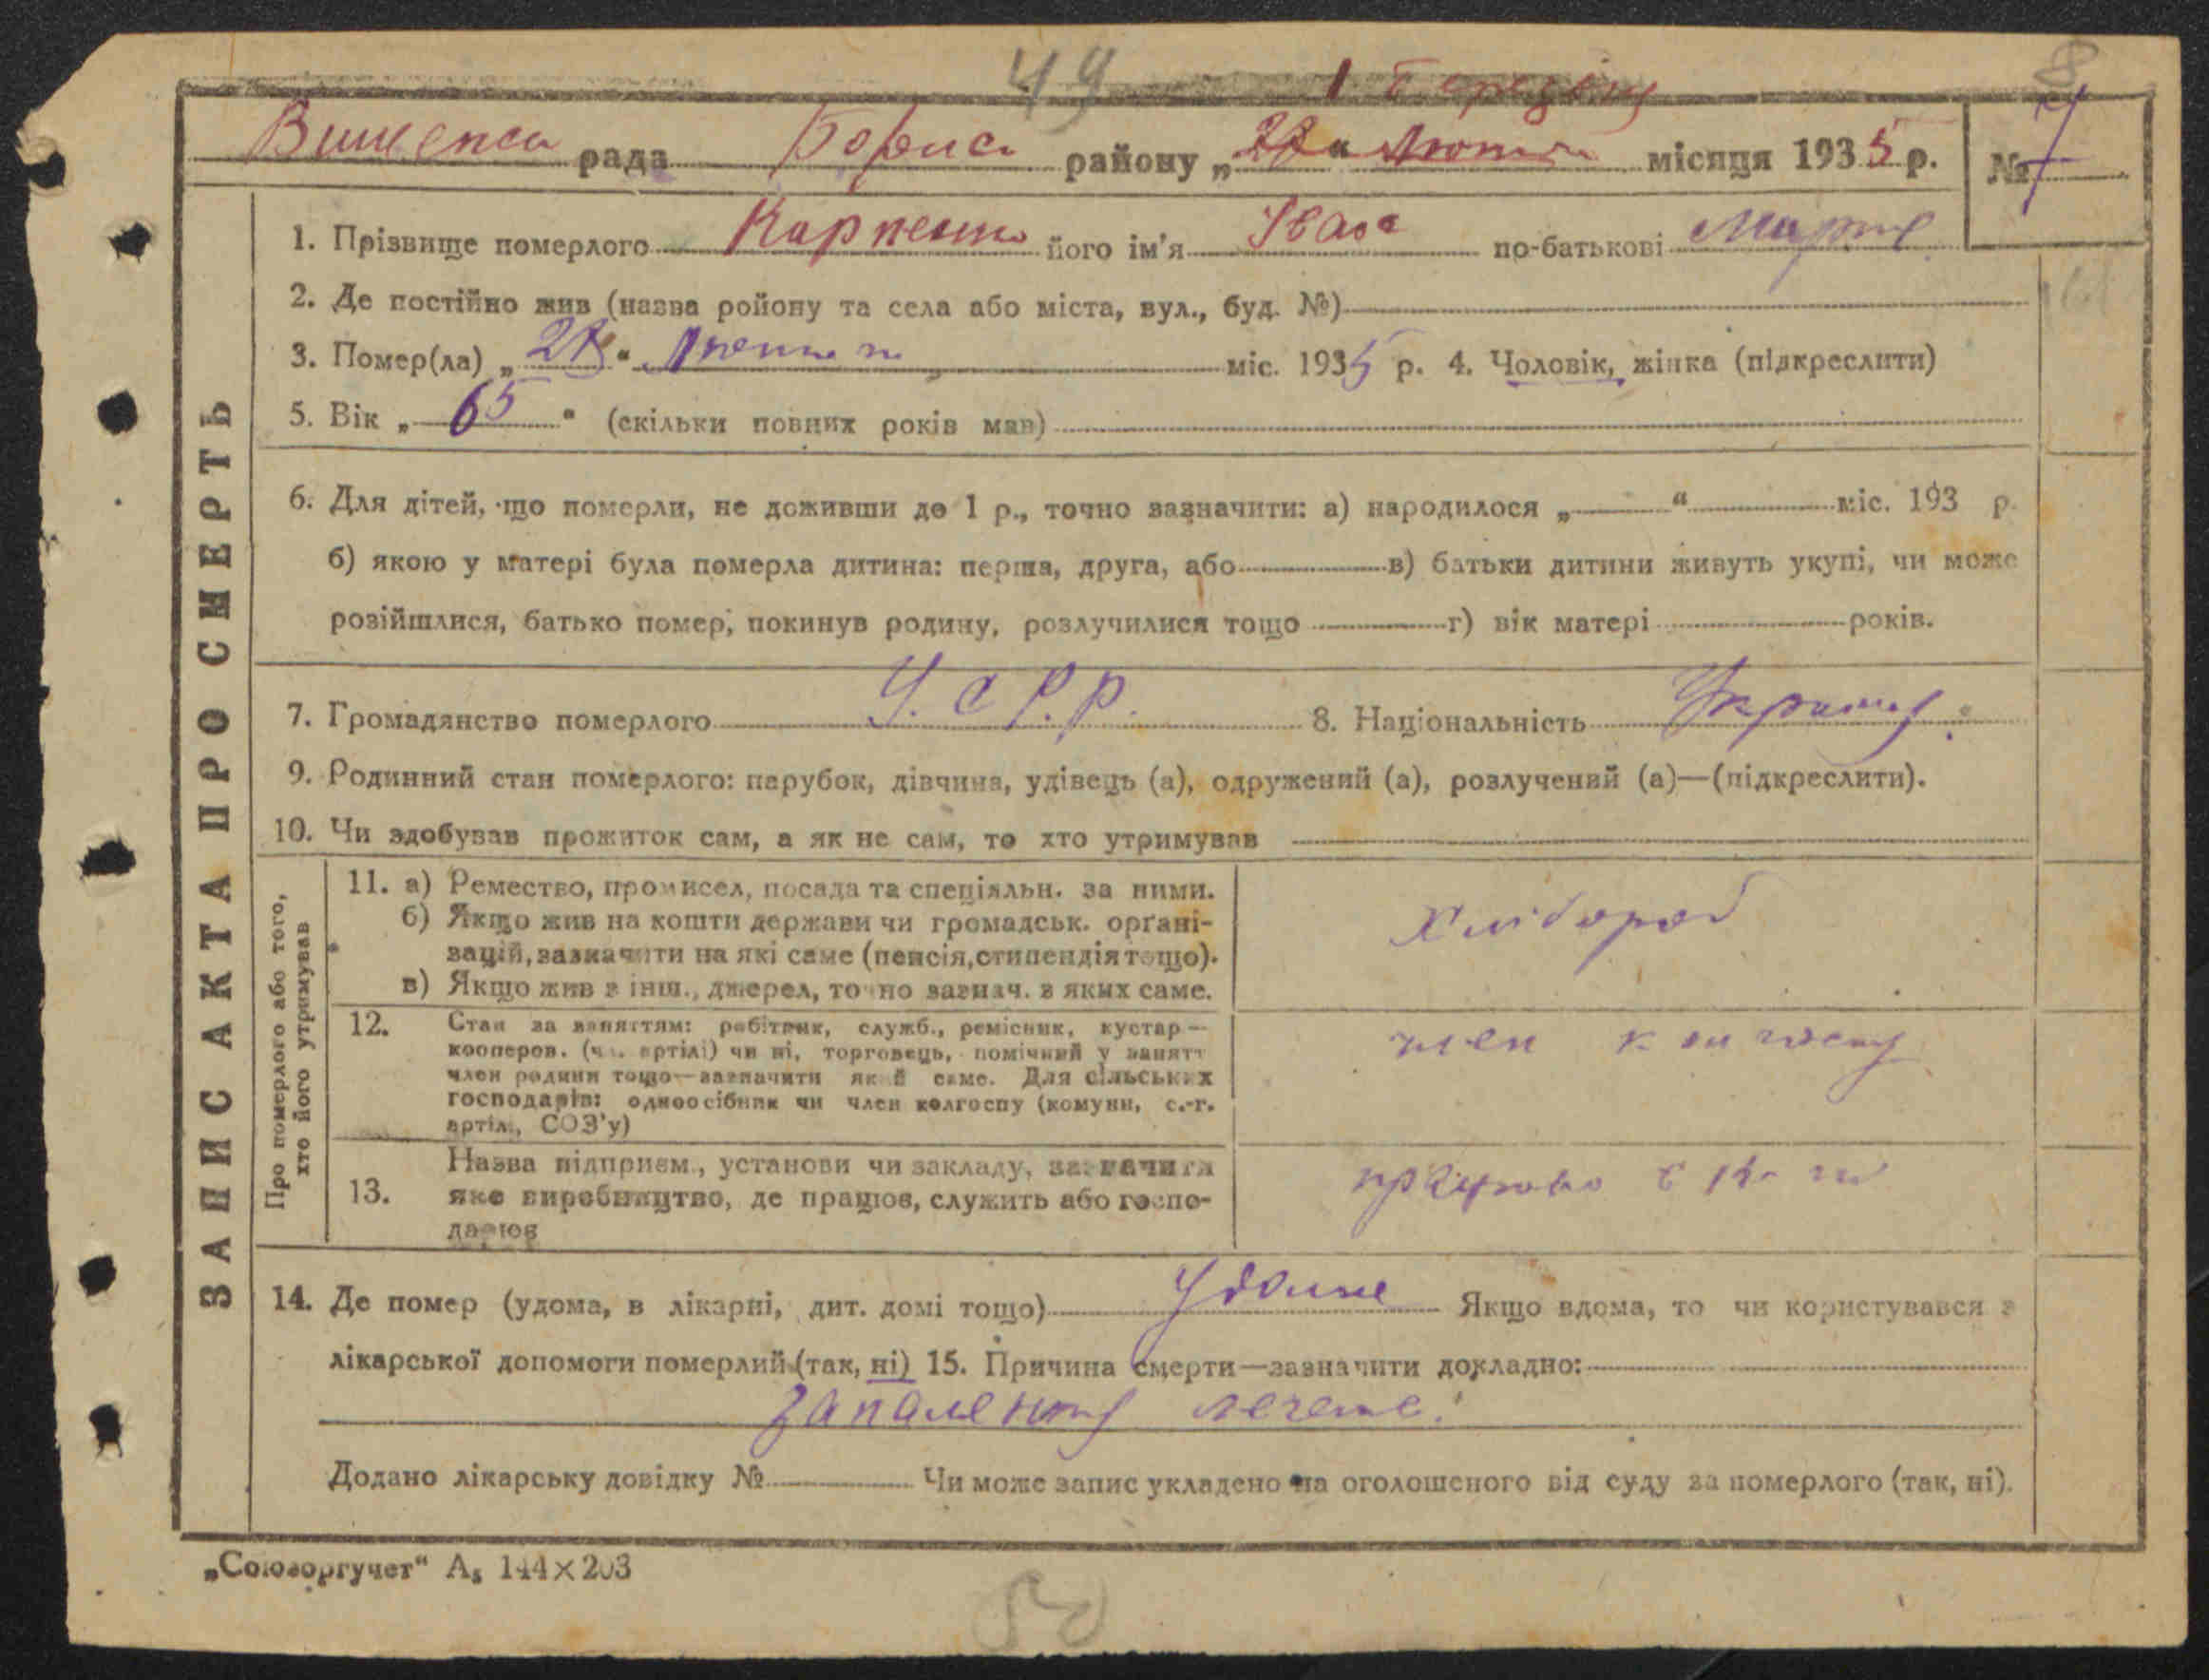 49 1 Березня 8
Вишенска рада Борис району „28“ Лютого місяця 1935 р. № 7
1. Прізвище померлого Карпенко його ім'я Іван по-батькові
2. Де постійно жив (назва ройону та села або міста, вул., буд. №)
3. Помер(ла) „28“ Лютого міс. 1935 р. 4. Чоловік, жінка (підкреслити)
5. Вік „65“ (скільки повних років мав)
6. Для дітей, що померли, не доживши до 1 р., точно зазначити: а) народилося „ “ міс. 193 р.
б) якою у матері була померла дитина: перша, друга, або в) батьки дитини живуть укупі, чи може
розійшлися, батько помер, покинув родину, розлучилися тощо г) вік матері років.
7. Громадянство померлого У.С.Р.Р. 8. Національність
9. Родинний стан померлого: парубок, дівчина, удівець (а), одружений (а), розлучений (а)—(підкреслити).
10. Чи здобував прожиток сам, а як не сам, то хто утримував
ЗАПИС АКТА ПРО СМЕРТЬ
Про померлого або того,
хто його утримував
11. а) Ремество, промисел, посада та спеціяльн. за ними.
б) Якщо жив на кошти держави чи громадськ. орґані-
зацій, зазначити на які саме (пенсія, стипендія тощо).
в) Якщо жив з інш., джерел, точно зазнач. з яких саме.
Хлібороб
12. Стан за заняттям: робітник, служб., ремісник, кустар—
кооперов. (чл. артілі) чи ні, торговець, помічний у занятт
член родини тощо—зазначити який саме. Для сільських
господарів: одноосібник чи член колгоспу (комуни, с.-г.
артілі, СОЗ'у)
член колгоспу
13. Назва підприєм., установи чи закладу, зазначити
яке виробництво, де працює, служить або госпо-
дарює
14. Де помер (удома, в лікарні, дит. домі тощо) Удома Якщо вдома, то чи користувався з
лікарської допомоги померлий (так, ні) 15. Причина смерти—зазначити докладно:
запаления легене.
Додано лікарську довідку № Чи може запис укладено на оголошеного від суду за померлого (так, ні).
„Союзоргучет“ А₅ 144×203
50